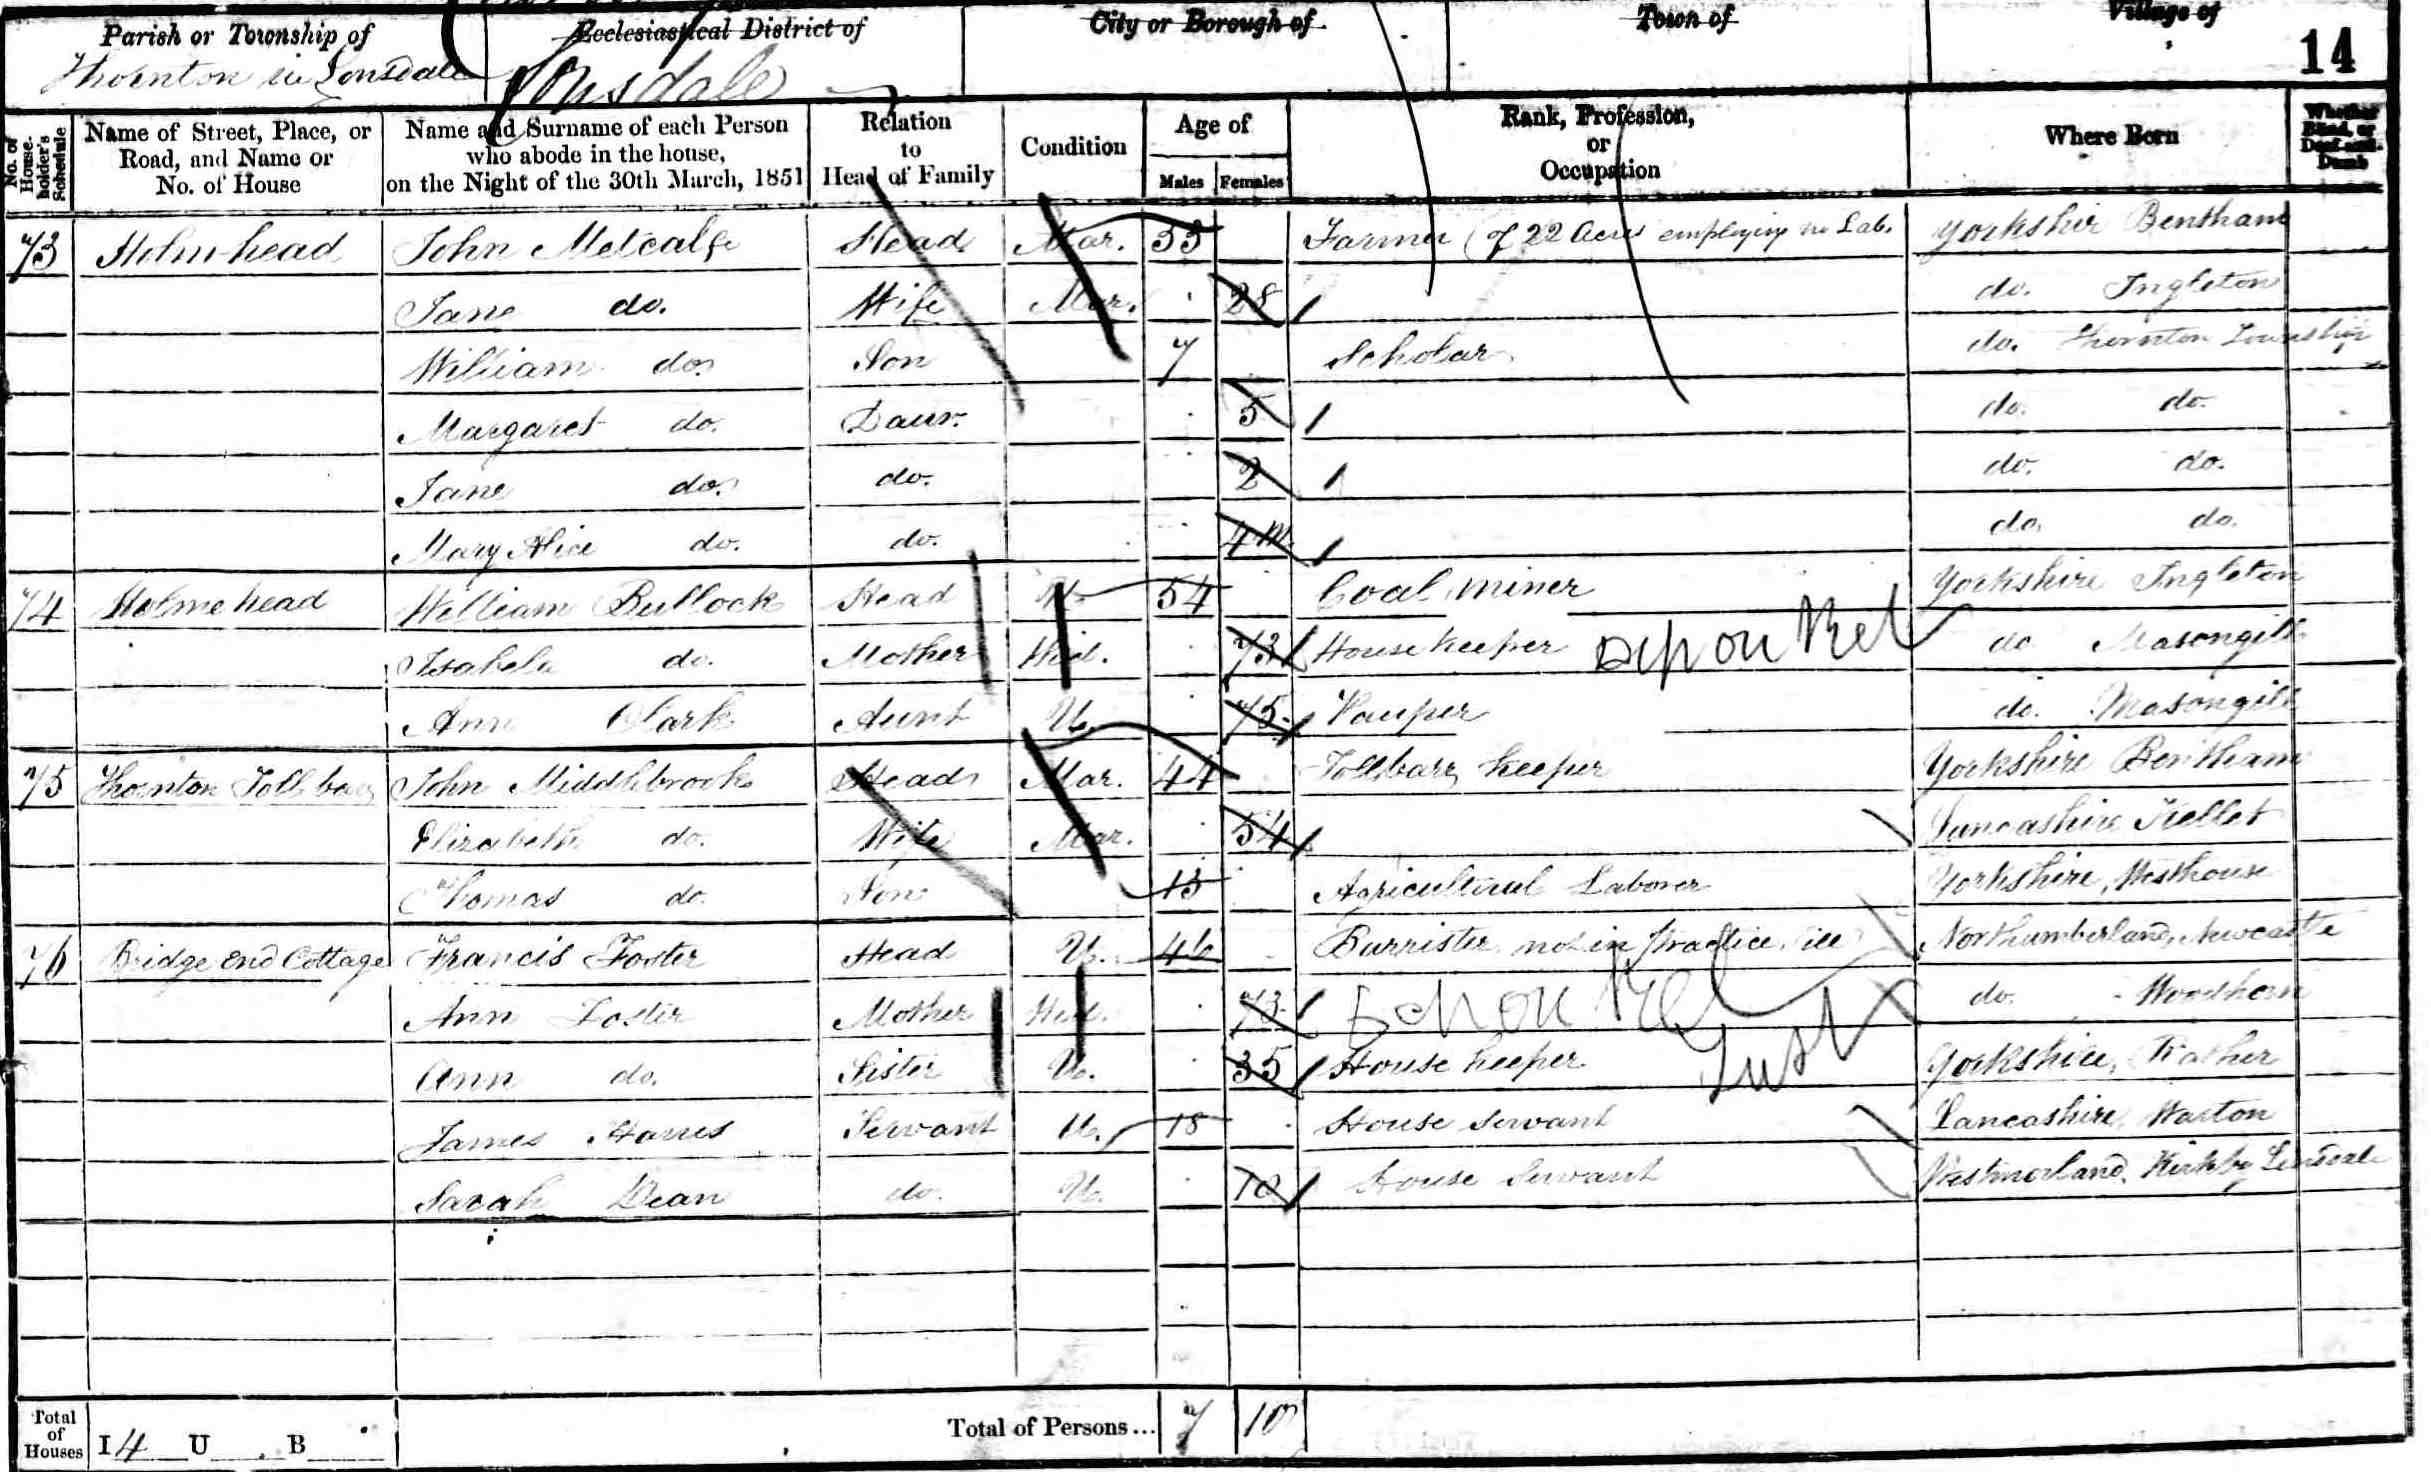 Parish or Township of Ecclesiastical District of City or Borough of Town of Village of
Thornton in Lonsdale Lonsdale 14
No. of House-holder's Schedule
Name of Street, Place, or Road, and Name or No. of House
Name and Surname of each Person who abode in the house, on the Night of the 30th March, 1851
Relation to Head of Family
Condition
Age of Males Females
Rank, Profession, or Occupation
Where Born
Whether Blind, or Deaf-and-Dumb
73 Holm-head John Metcalfe Head Mar. 33 Farmer (of 22 Acres employing no Lab. Yorkshir Bentham
Jane do. Wife Mar. 28 do. Ingleton
William do. Son 7 Scholar do. Thornton Township
Margaret do. Daur. 5 do. do.
Jane do. do. 2 do. do.
Mary Alice do. do. 4 m. do. do.
74 Holme head William Bullock Head U. 54 Coal miner Yorkshire Ingleton
Isabela do. Mother Wid. 73 House Keeper do Masongill
Ann Clark Aunt U. 75 Pauper do. Masongill
75 Thornton Toll bar John Middlebrook Head Mar. 44 Toll barr Keeper Yorkshire Bentham
Elizabeth do. Wife Mar. 54 Lancashire Kellet
Thomas do. Son 13 Agricultural Laborer Yorkshire, Westhouse
76 Bridge End Cottage Francis Foster Head U. 46 Barrister not in practice Northumberland, Newcastle
Ann Foster Mother Wid. 73 do. Woodhorn
Ann do. Sister U. 35 House keeper Yorkshire,
James Harris Servant U. 18 House servant Lancashire, Warton
Sarah Dean do. U. House Servant Westmorland. Kirkby Lonsdale
Total of Houses I 4 U B Total of Persons... 7 10